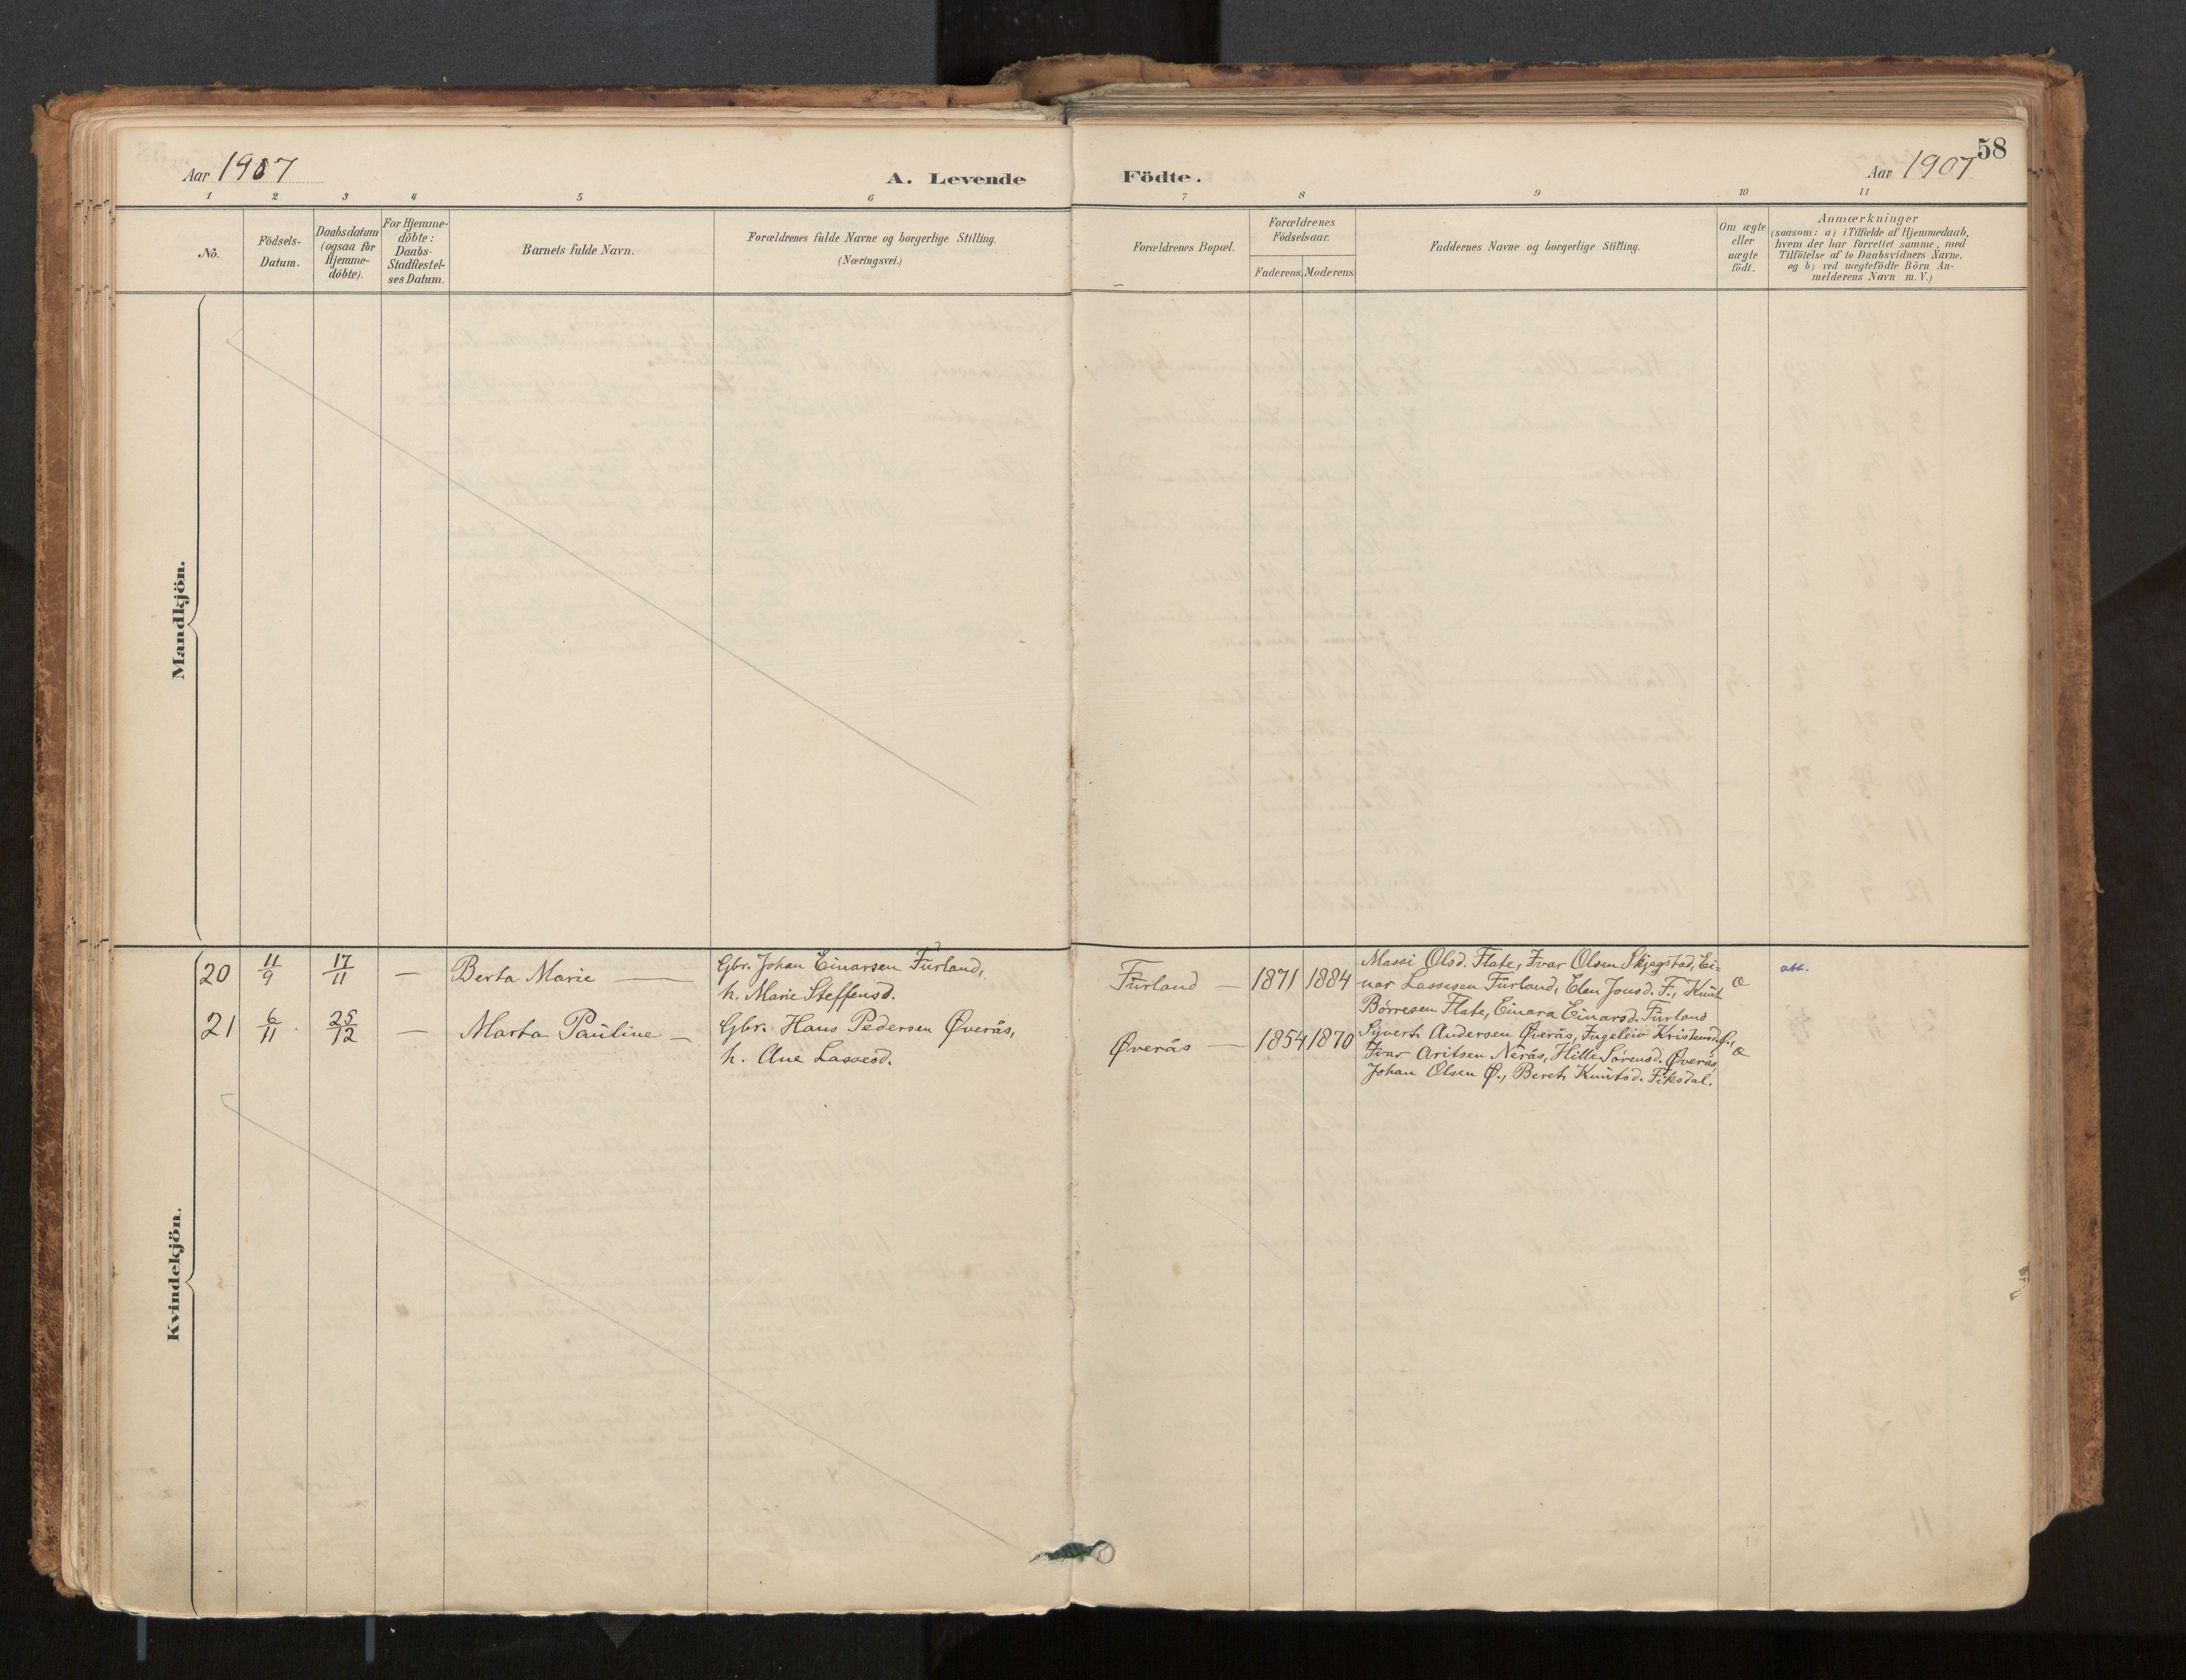 58
Aar 1907
A. Levende
Födte.
Aar 1907
1 2 3 4 5 6 7 8 9 10 11
No.
Födsels-
Datum.
Daabsdatum
(ogsaa for
Hjemme-
döbte).
For Hjemme-
döbte:
Daabs-
Stadfæstel-
ses Datum.
Barnets fulde Navn.
Forældrenes fulde Navne og borgerlige Stilling.
(Næringsvei.)
Forældrenes Bopæl.
Forældrenes
Födselsaar.
Faderens. Moderens.
Faddernes Navne og borgerlige Stilling.
Om ægte
eller
uægte
födt.
Anmærkninger
(saasom: a) i Tilfælde af Hjemmedaab,
hvem der har forrettet samme, med
Tilföielse af to Daabsvidners Navne,
og b) ved uægtefödte Börn An-
melderens Navn m.V.)
Mandkjön.
Kvindekjön.
20 11/9 17/11 — Berta Marie — Gbr. Johan Einarsen Furland,
h. Marie Steffensd.
Furland — 1871 1884
Massi Olsd. Flate, Ivar Olsen Skjegstad, Ei-
nar Lassesen Furland, Elen Jonsd. F., Knut
Børresen Flate, Einara Einarsd. Furland
Æ
att.
21 6/11 25/12 — Marta Pauline — Gbr. Hans Pedersen Øverås,
h. Ane Lassesd.
Øverås — 1854 1870
Sivert Andersen Øverås, Ingeleiv Kristensd. Ø.,
Ivar Aritsen Nerås, Hille Sørensd. Øverås,
Johan Olsen Ø., Beret Knutsd. Fiksdal.
Æ